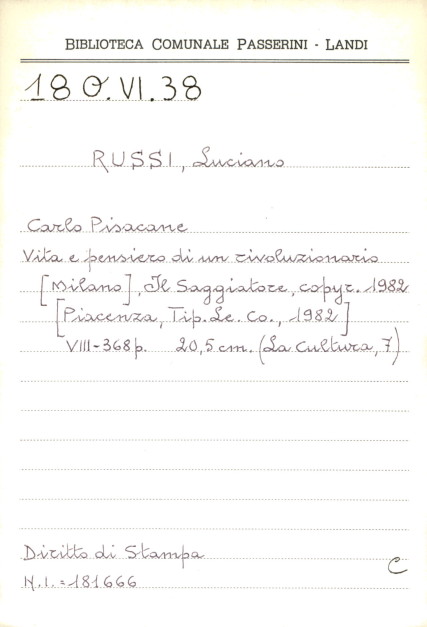 BIBLIOTECA COMUNALE PASSERINI - LANDI
18 O.VI.38
RUSSI, Luciano
Carlo Pisacane
Vita e pensiero di un rivoluzionario
[Milano], Il Saggiatore, copyr. 1982
[Piacenza, Tip. Le. Co., 1982]
VIII-368 p. 20,5 cm. (La Cultura, 7)
Diritto di Stampa
C
N.I. = 181666